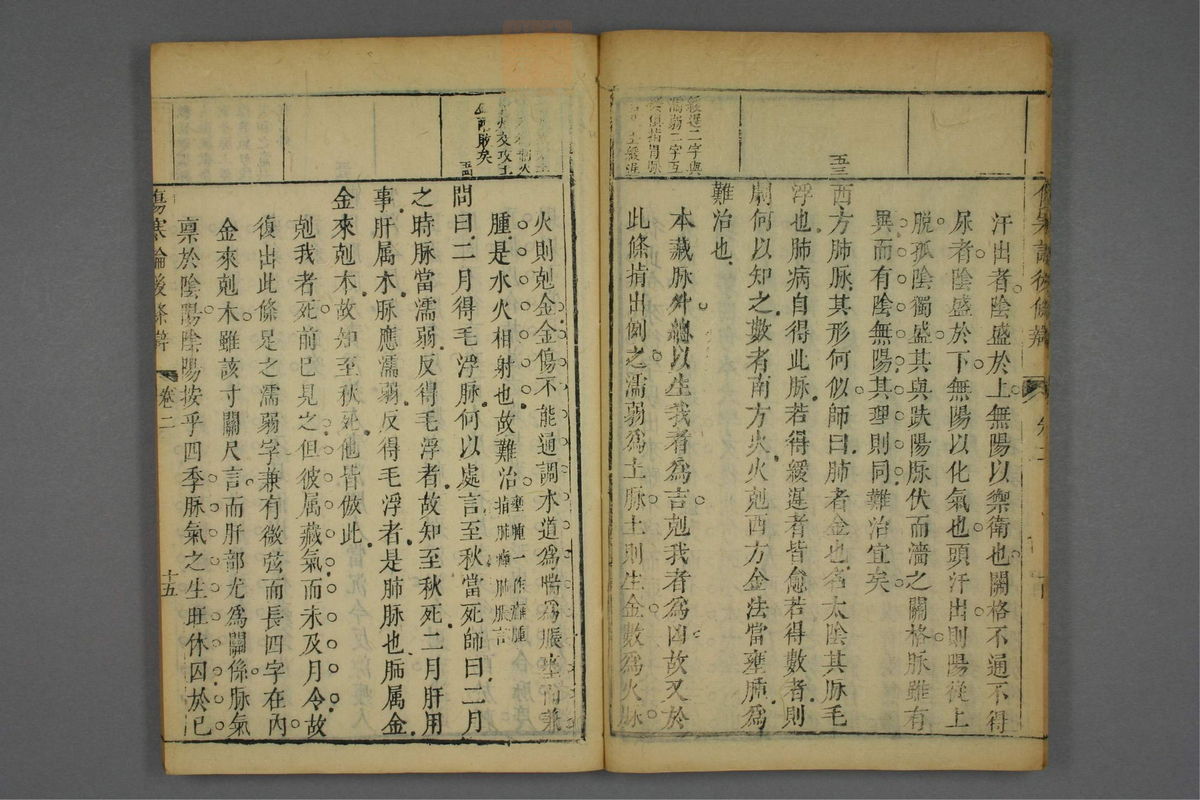 緩遲二字與
濡弱二字互
五三
汗出者陰盛於上無陽以禦衛也關格不通不得
尿者陰盛於下無陽以化氣也頭汗出則陽從上
脫孤陰獨盛其與趺陽脉伏而濇之關格脉雖有
異而有陰無陽其理則同難治宜矣
西方肺脉其形何似師曰肺者金也名太陰其脉毛
浮也肺病自得此脉若得緩遲者皆愈若得數者則
劇何以知之數者南方火火剋西方金法當壅腫為
難治也
本藏脉外總以生我者為吉剋我者為凶故又於
此條揹出例之濡弱為土脉土則生金數為火脉
五四
火則剋金金傷不能通調水道為喘為脹壅而兼
腫是水火相射也故難治壅腫一作癰腫
指肺癰肺脹言
問曰二月得毛浮脉何以處言至秋當死師曰二月
之時脉當濡弱反得毛浮者故知至秋死二月肝用
事肝属木脉應濡弱反得毛浮者是肺脉也肺属金
金來剋木故知至秋死他皆倣此
剋我者死前已見之但彼属藏氣而未及月令故
復出此條足之濡弱字兼有微弦而長四字在內
金來剋木雖該寸關尺言而肝部尤為關係脉氣
禀於陰陽陰陽按乎四季脉氣之生旺休囚於已
傷寒論後條辨 卷二 十五